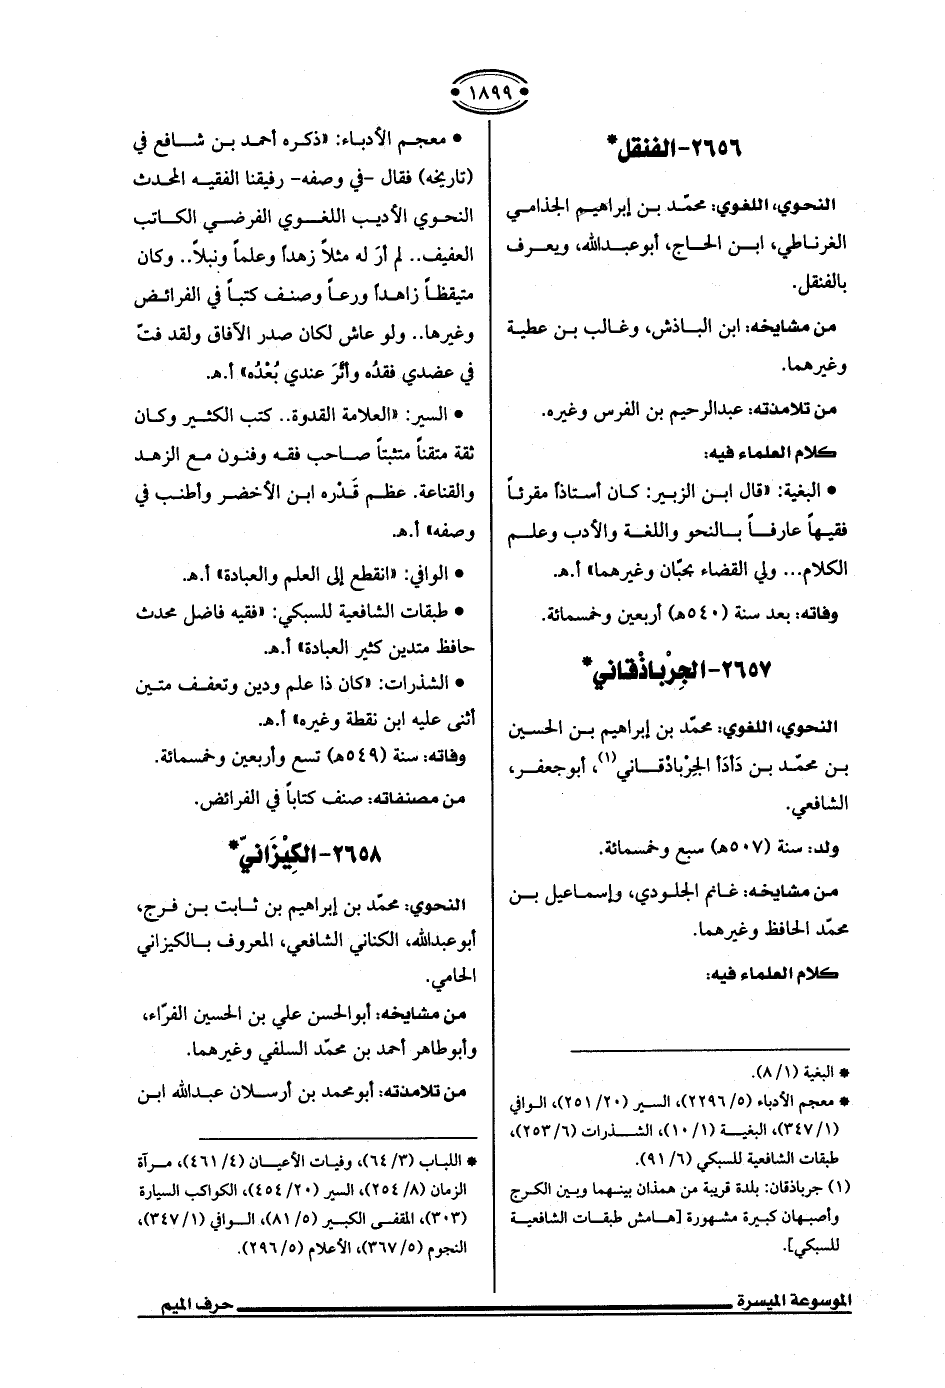 ١٨٩٩
٢٦٥٦-الفنقل*
النحوي، اللغوي: محمّد بن إبراهيم الجذامي
الغرناطي، ابن الحاج، أبو عبدالله، ويعرف
بالفنقل.
من مشايخه: ابن الباذش، وغالب بن عطية
وغيرهما.
من تلامذته: عبدالرحيم بن الفرس وغيره.
كلام العلماء فيه:
• البغية: «قال ابن الزبير: كان أستاذاً مقرئاً
فقيهاً عارفاً بالنحو واللغة والأدب وعلم
الكلام... ولي القضاء بجبّان وغيرهما» أ.هـ.
وفاته: بعد سنة (٥٤٠هـ) أربعين وخمسمائة.
٢٦٥٧-الجِرْباذْقاني*
النحوي، اللغوي: محمّد بن إبراهيم بن الحسين
بن محمّد بن دَادَا الجَرْباذْقاني(١)، أبو جعفر،
الشافعي.
ولد: سنة (٥٠٧هـ) سبع وخمسمائة.
من مشايخه: غانم الجلودي، وإسماعيل بن
محمّد الحافظ وغيرهما.
كلام العلماء فيه:
* البغية (٨/١).
* معجم الأدباء (٢٢٩٦/٥)، السير (٢٥١/٢٠)، الوافي
(٣٤٧/١)، البغية (١٠/١)، الشذرات (٢٥٣/٦)،
طبقات الشافعية للسبكي (٩١/٦).
(١) جرباذقان: بلدة قريبة من همذان بينهما وبين الكرج
وأصبهان كبيرة مشهورة [هامش طبقات الشافعية
للسبكي].
• معجم الأدباء: «ذكره أحمد بن شافع في
(تاريخه) فقال -في وصفه- رفيقنا الفقيه المحدث
النحوي الأديب اللغوي الفرضي الكاتب
العفيف.. لم أرَ له مثلاً زهداً وعلماً ونبلاً.. وكان
متيقظاً زاهداً ورعاً وصنف كتباً في الفرائض
وغيرها.. ولو عاش لكان صدر الآفاق ولقد فتّ
في عضدي فقدُه وأثّرَ عندي بُعْدُه» أ.هـ.
• السير: «العلامة القدوة.. كتب الكثير وكان
ثقة متقناً متثبتاً صاحب فقه وفنون مع الزهد
والقناعة. عظم قَدْره ابن الأخضر وأطنب في
وصفه» أ.هـ.
• الوافي: «انقطع إلى العلم والعبادة» أ.هـ.
• طبقات الشافعية للسبكي: «فقيه فاضل محدث
حافظ متدين كثير العبادة» أ.هـ.
• الشذرات: «كان ذا علم ودين وتعفف متين
أثنى عليه ابن نقطة وغيره» أ.هـ.
وفاته: سنة (٥٤٩هـ) تسع وأربعين وخمسمائة.
من مصنفاته: صنف كتاباً في الفرائض.
٢٦٥٨-الكِيْزَانيّ*
النحوي: محمّد بن إبراهيم بن ثابت بن فرج،
أبو عبدالله، الكناني الشافعي، المعروف بالكيزاني
الحامي.
من مشايخه: أبو الحسن علي بن الحسين الفرّاء،
وأبو طاهر أحمد بن محمّد السلفي وغيرهما.
من تلامذته: أبو محمد بن أرسلان عبدالله ابن
* اللباب (٦٤/٣)، وفيات الأعيان (٤٦١/٤)، مرآة
الزمان (٢٥٤/٨)، السير (٤٥٤/٢٠)، الكواكب السيارة
(٣٠٣)، المقفى الكبير (٨١/٥)، الوافي (٣٤٧/١)،
النجوم (٣٦٧/٥)، الأعلام (٢٩٦/٥).
الموسوعة الميسرة
حرف الميم